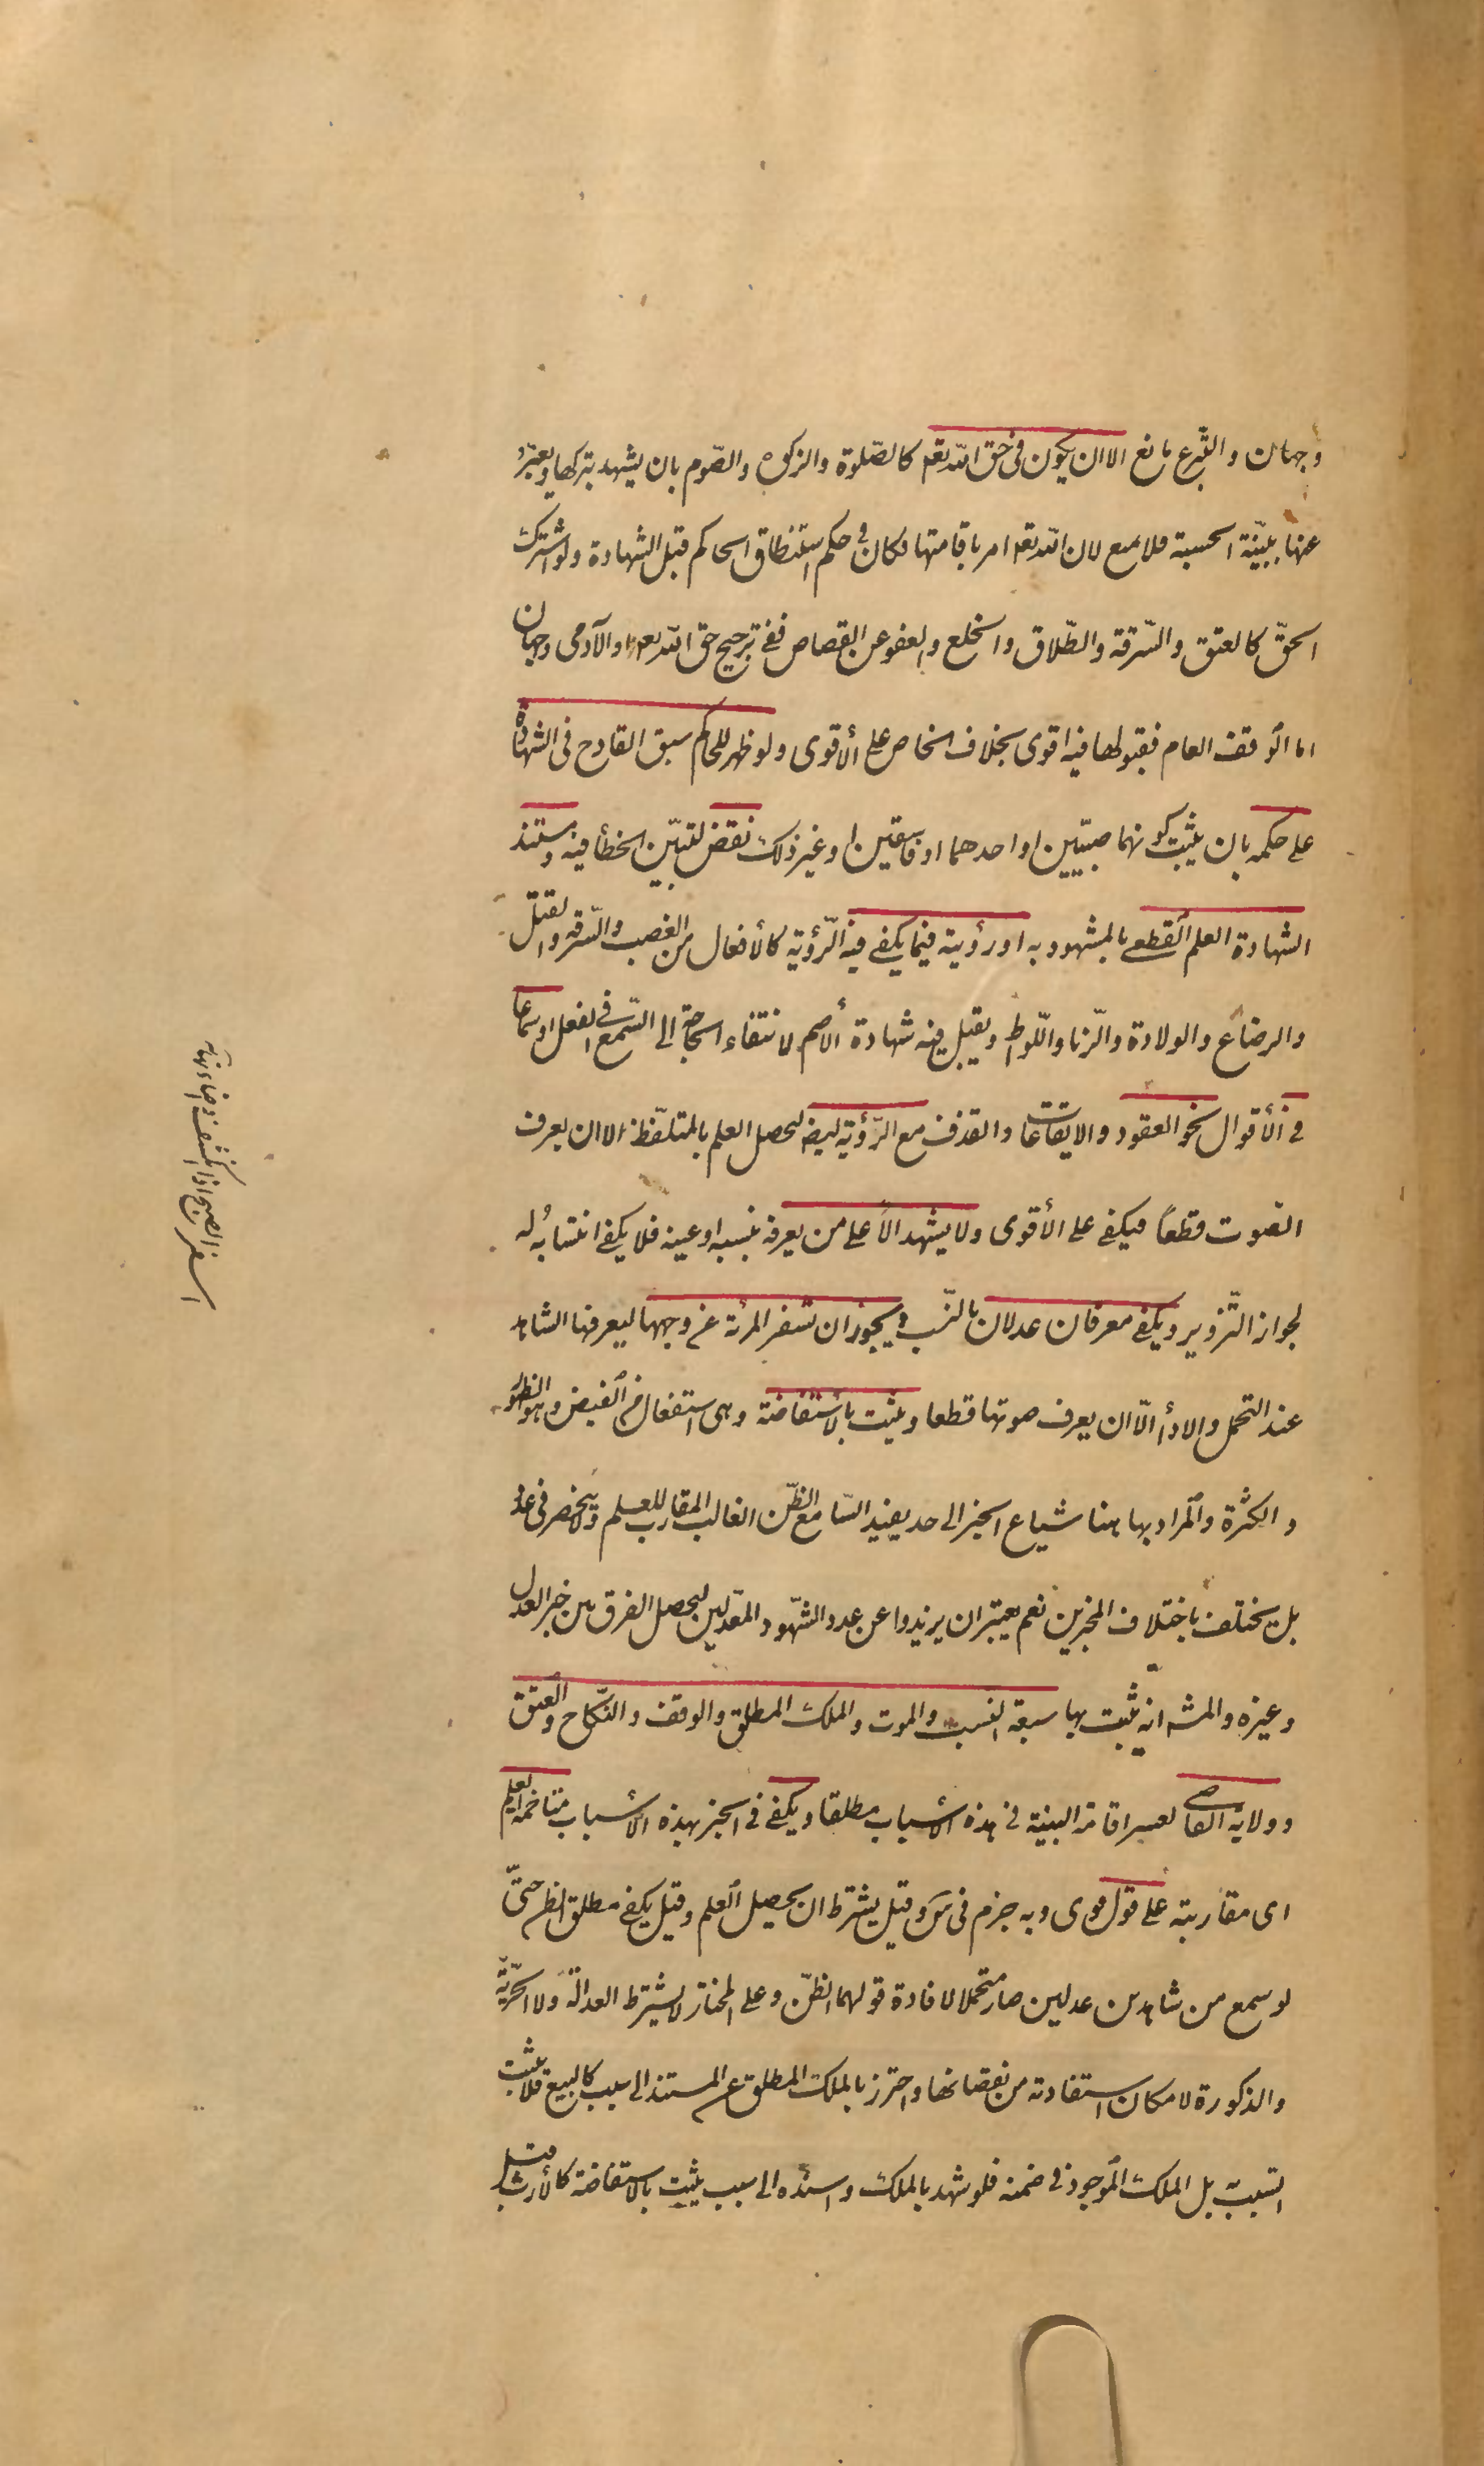 وجهان والتبرع مانع الا ان يكون فى حق الله تعه كالصلوة والزكوه والصّوم بان يشهد بتركها ويعبّر
عنها ببيّنة الحسبة فلا يمنع لان الله تعه امر باقامتها فكان فى حكم استنطاق الحاكم قبل الشهادة ولو اشترك
الحقّ كالعتق والسّرقة والطّلاق والخلع والعفو عن القصاص ففى ترجيح حق الله تعه او الآدمى وجهان
اما الوقف العام فقبولها فيه اقوى بخلاف الخاص على الأقوى ولو ظهر للحاكم سبق القادح فى الشهادة
على حكمه بان يثبت كونهما صبيّين او احدهما او فاسقين او غير ذلك نقض لتبيّن الخطأ فيه ومستند
الشهادة العلم القطعى بالمشهود به او رؤية فيما يكفى فيه الرّؤية كالأفعال من الغصب والسّرقه والقتل
والرضاع والولادة والزّنا واللّواط ويقبل فيه شهادة الأصم لانتفاء الحاجة الى السّمع فى الفعل او سماعا
فى الأقوال نحو العقود والايقاعات والقذف مع الرّؤية ايضا ليحصل العلم بالمتلفّظ الا ان يعرف
الصّوت قطعا فيكفى على الأقوى ولا يشهد الّا على من يعرفه بنسبه او عينه فلا يكفى انتسابه له
لجواز التّزوير ويكفى معرفان عدلان بالنّسب ويجوز ان تسفر المرئة عن وجهها ليعرفها الشاهد
عند التحمل والادأ الّا ان يعرف صوتها قطعا ويثبت بالأستفاضة وهى استفعال من الفيض وهو الظهور
والكثرة والمراد بها هنا شياع الخبر الى حد يفيد السّامع الظّن الغالب المقارب للعلم ولا ينحصر فى عدد
بل يختلف باختلاف المخبرين نعم يعتبر ان يزيدوا عن عدد الشّهود المعدّلين ليحصل الفرق بين خبر العدل
وغيره والمشه انّه يثبت بها سبعة النسب والموت والملك المطلق والوقف والنّكاح والعتق
وولاية القاضى لعسر اقامة البينة فى هذه الأسباب مطلقا ويكفى فى الخبر بهذه الأسباب متاخمة العلم
اى مقاربته على قول قوى وبه جزم فى س وقيل يشترط ان يحصل العلم وقيل يكفى مطلق الظن حتىّ
لو سمع من شاهدين عدلين صار متحملا لافادة قولهما الظّن وعلى المختار لا يشترط العدالة ولا الحّريّة
والذكورة لامكان استفادته من نقصانها واحترز بالملك المطلق عن المستند الى سبب كالبيع فلا يثبت
السّبب به بل الملك الموجود فى ضمنه فلو شهد بالملك واسنده الى سبب يثبت بالاستفاضة كالأرث قبل
اسفر الصبح اذا انكشف واضاء نهايه